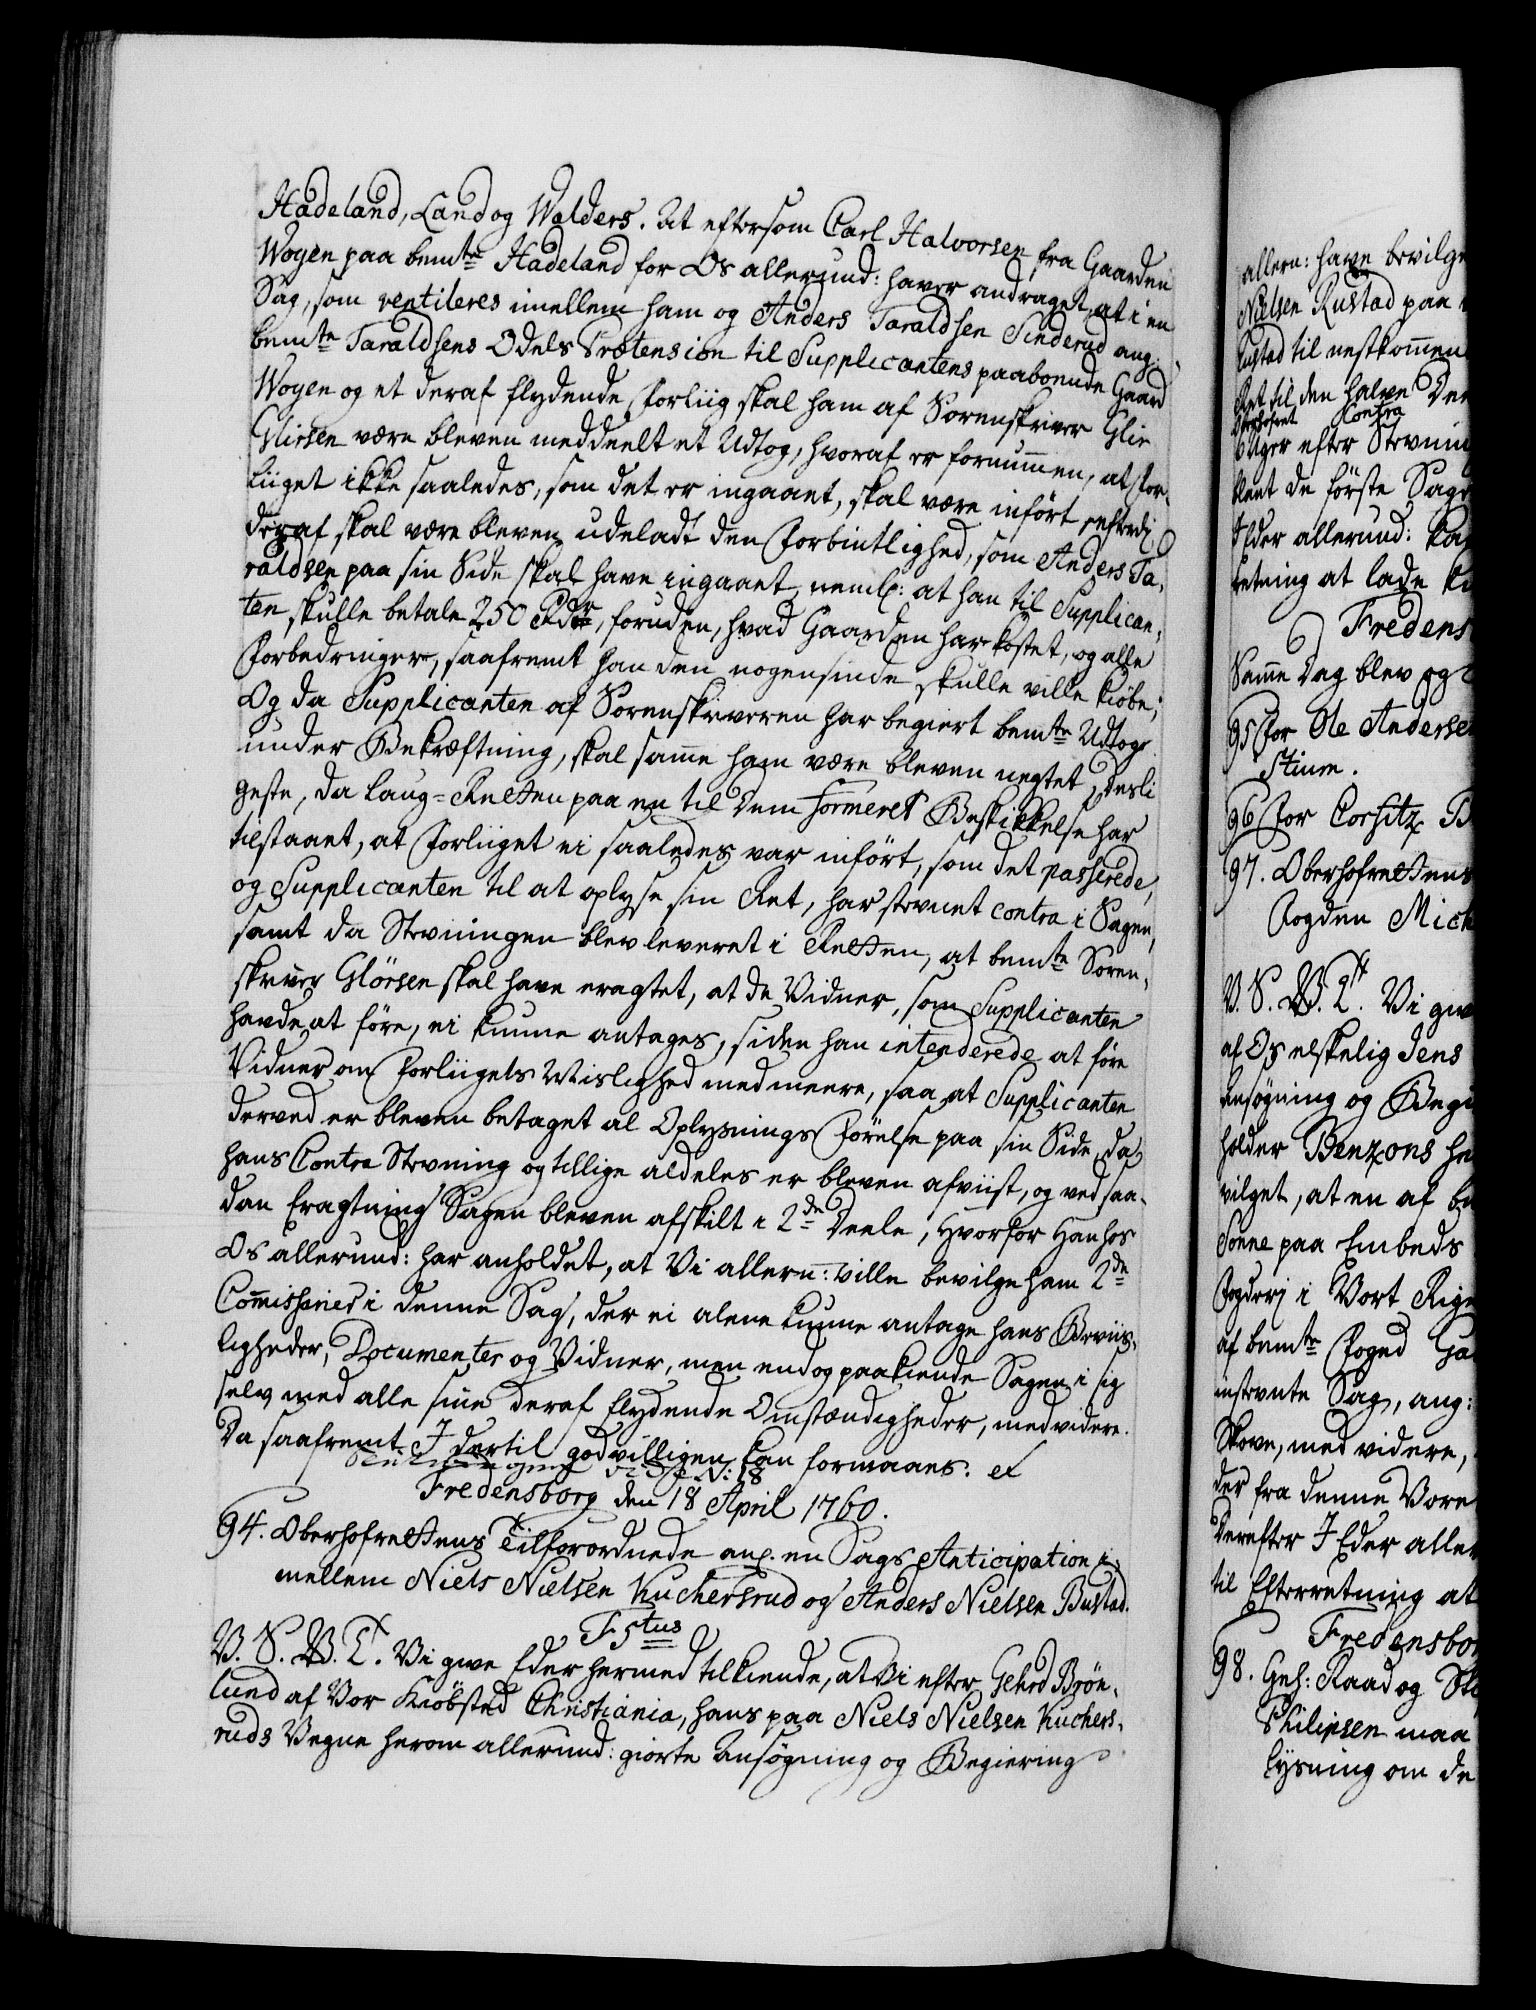 Hadeland, Land og Walders. At eftersom Carl Halvorsen fra Gaarden
Woyen paa bemte Hadeland for Os allerund: haver andraget, at i en
Sag, som ventileres imellem ham og Anders Taraldsen Sinderud ang:
bemte Taraldsens Odels Prætension til Supplicantens paaboende Gaard
Woyen og et deraf flydende Forliig skal ham af Sorenskriver Glie
være bleven meddeelt et Udtog, hvoraf er fornummen, at For-
liiget ikke saaledes, som det er ingaaet, skal være indført, efterdi
deraf skal være bleven udeladt den Forbintlighed, som Anders Ta-
raldsen paa sin Side skal have ingaaet, neml: at han til Supplican-
ten skulle betale 250 Rdr, foruden, hvad Gaarden har kostet, og alle
Forbedringer, saafremt han den nogensinde skulle ville kiøbe;
Og da Supplicanten af Sorenskriveren har begiert bemte Udtog
under Bekræftning, skal samme ham være bleven negtet, desli
geste, da Laug-Retten paa en til Dem formeret Beskikkelse har
tilstaaet, at Forliiget ei saaledes var inført, som det passerede,
og Supplicanten til at oplyse sin Ret, har stevnet contra i Sagen,
samt da Stevningen blev leveret i Retten, at bemte Soren-
skriver Glørsen skal have eragtet, at de Vidner, som Supplicanten
havde at føre, ei kunne antages, siden han intenderede at føre
Vidner om Forliigets Wislighed med meere, saa at Supplicanten
derved er bleven betaget al Oplysnings Førelse paa sin Side, da
hans Contra Stevning og tillige aldeles er bleven afviist, og ved saa-
dan Eragtning Sagen bleven afskilt i 2de Deele, Hvorfor Han hos
Os allerund: har anholdet, at Vi allern: ville bevilge ham 2de
Commissarier i denne Sag, der ei alene kunne antage hans Beviis-
ligheder, Documenter og Vidner, men endog paakiende Sagen i sig
selv med alle sine deraf flydende Omstændigheder, med videre.
Da saafremt I dertil godvilligen kan formaaes. et
N: 18
Fredensborg den 18 April 1760.
94. Oberhofrettens Tilforordnede ang. en Sags Anticipation i-
mellem Niels Nielsen Kuchersrud og Anders Nielsen Bustad.
F 5tus
V. S. W. T. Vi give Eder hermed tilkiende, at Vi efter Gehrd Brøn-
lund af Vor Kiøbsted Christiania, hans paa Niels Nielsen Kuchers-
ruds Vegne herom allerund: giorte Ansøgning og Begiering
allern: have bevilge
Nielsen Rustad paa
Rustad til nestkommen
Ret til den halve Dee
Oberhofret Contra
Uger efter Stevnin
kent de første Sag
I Eder allerund:
retning at lade
Fredens
Samme Dag blev og
95 For Ole Anderse
96 For Corfitz B
97. Oberhofrettens
Fogden Mich
V. S. W. T. Vi give
af Os elskelig Jens
Ansøgning og Begi
holder Benzons he
vilget, at en af be
Sønne paa Embeds
Fogderi i Vort Rige
af bemte Foged Ga
instevnte Sag, ang:
Skove, med videre,
der fra denne Vore
Derefter I Eder aller
til Efterretning at
Fredensbor
98. Geh: Raad og St
Philipsen maa
lysning om de